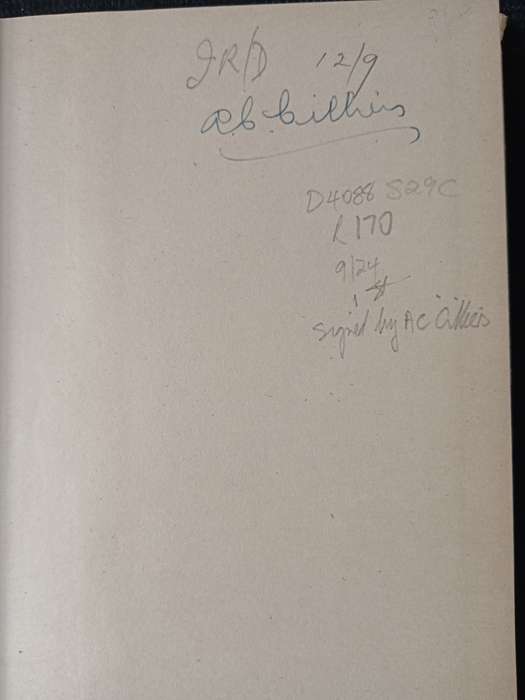 JR/D 12/9
A.C. Cillliers
D4088 S29C
R170
9/24
1st
signed by AC Cilliers